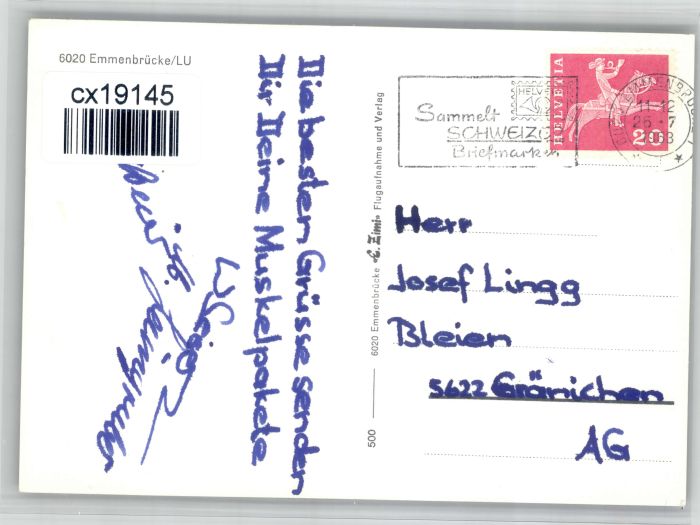 6020 Emmenbrücke/LU
cx19145
Die besten Grüsse senden
Dir Deine Muskelpakete
6020 Emmenbrücke E. Zimi Flugaufnahme und Verlag
500
HELVETIA
Sammelt
SCHWEIZ
Briefmarken
HELVETIA
20
11-12
25.7
Herr
Josef Lingg
Bleien
5622 Gränichen
AG